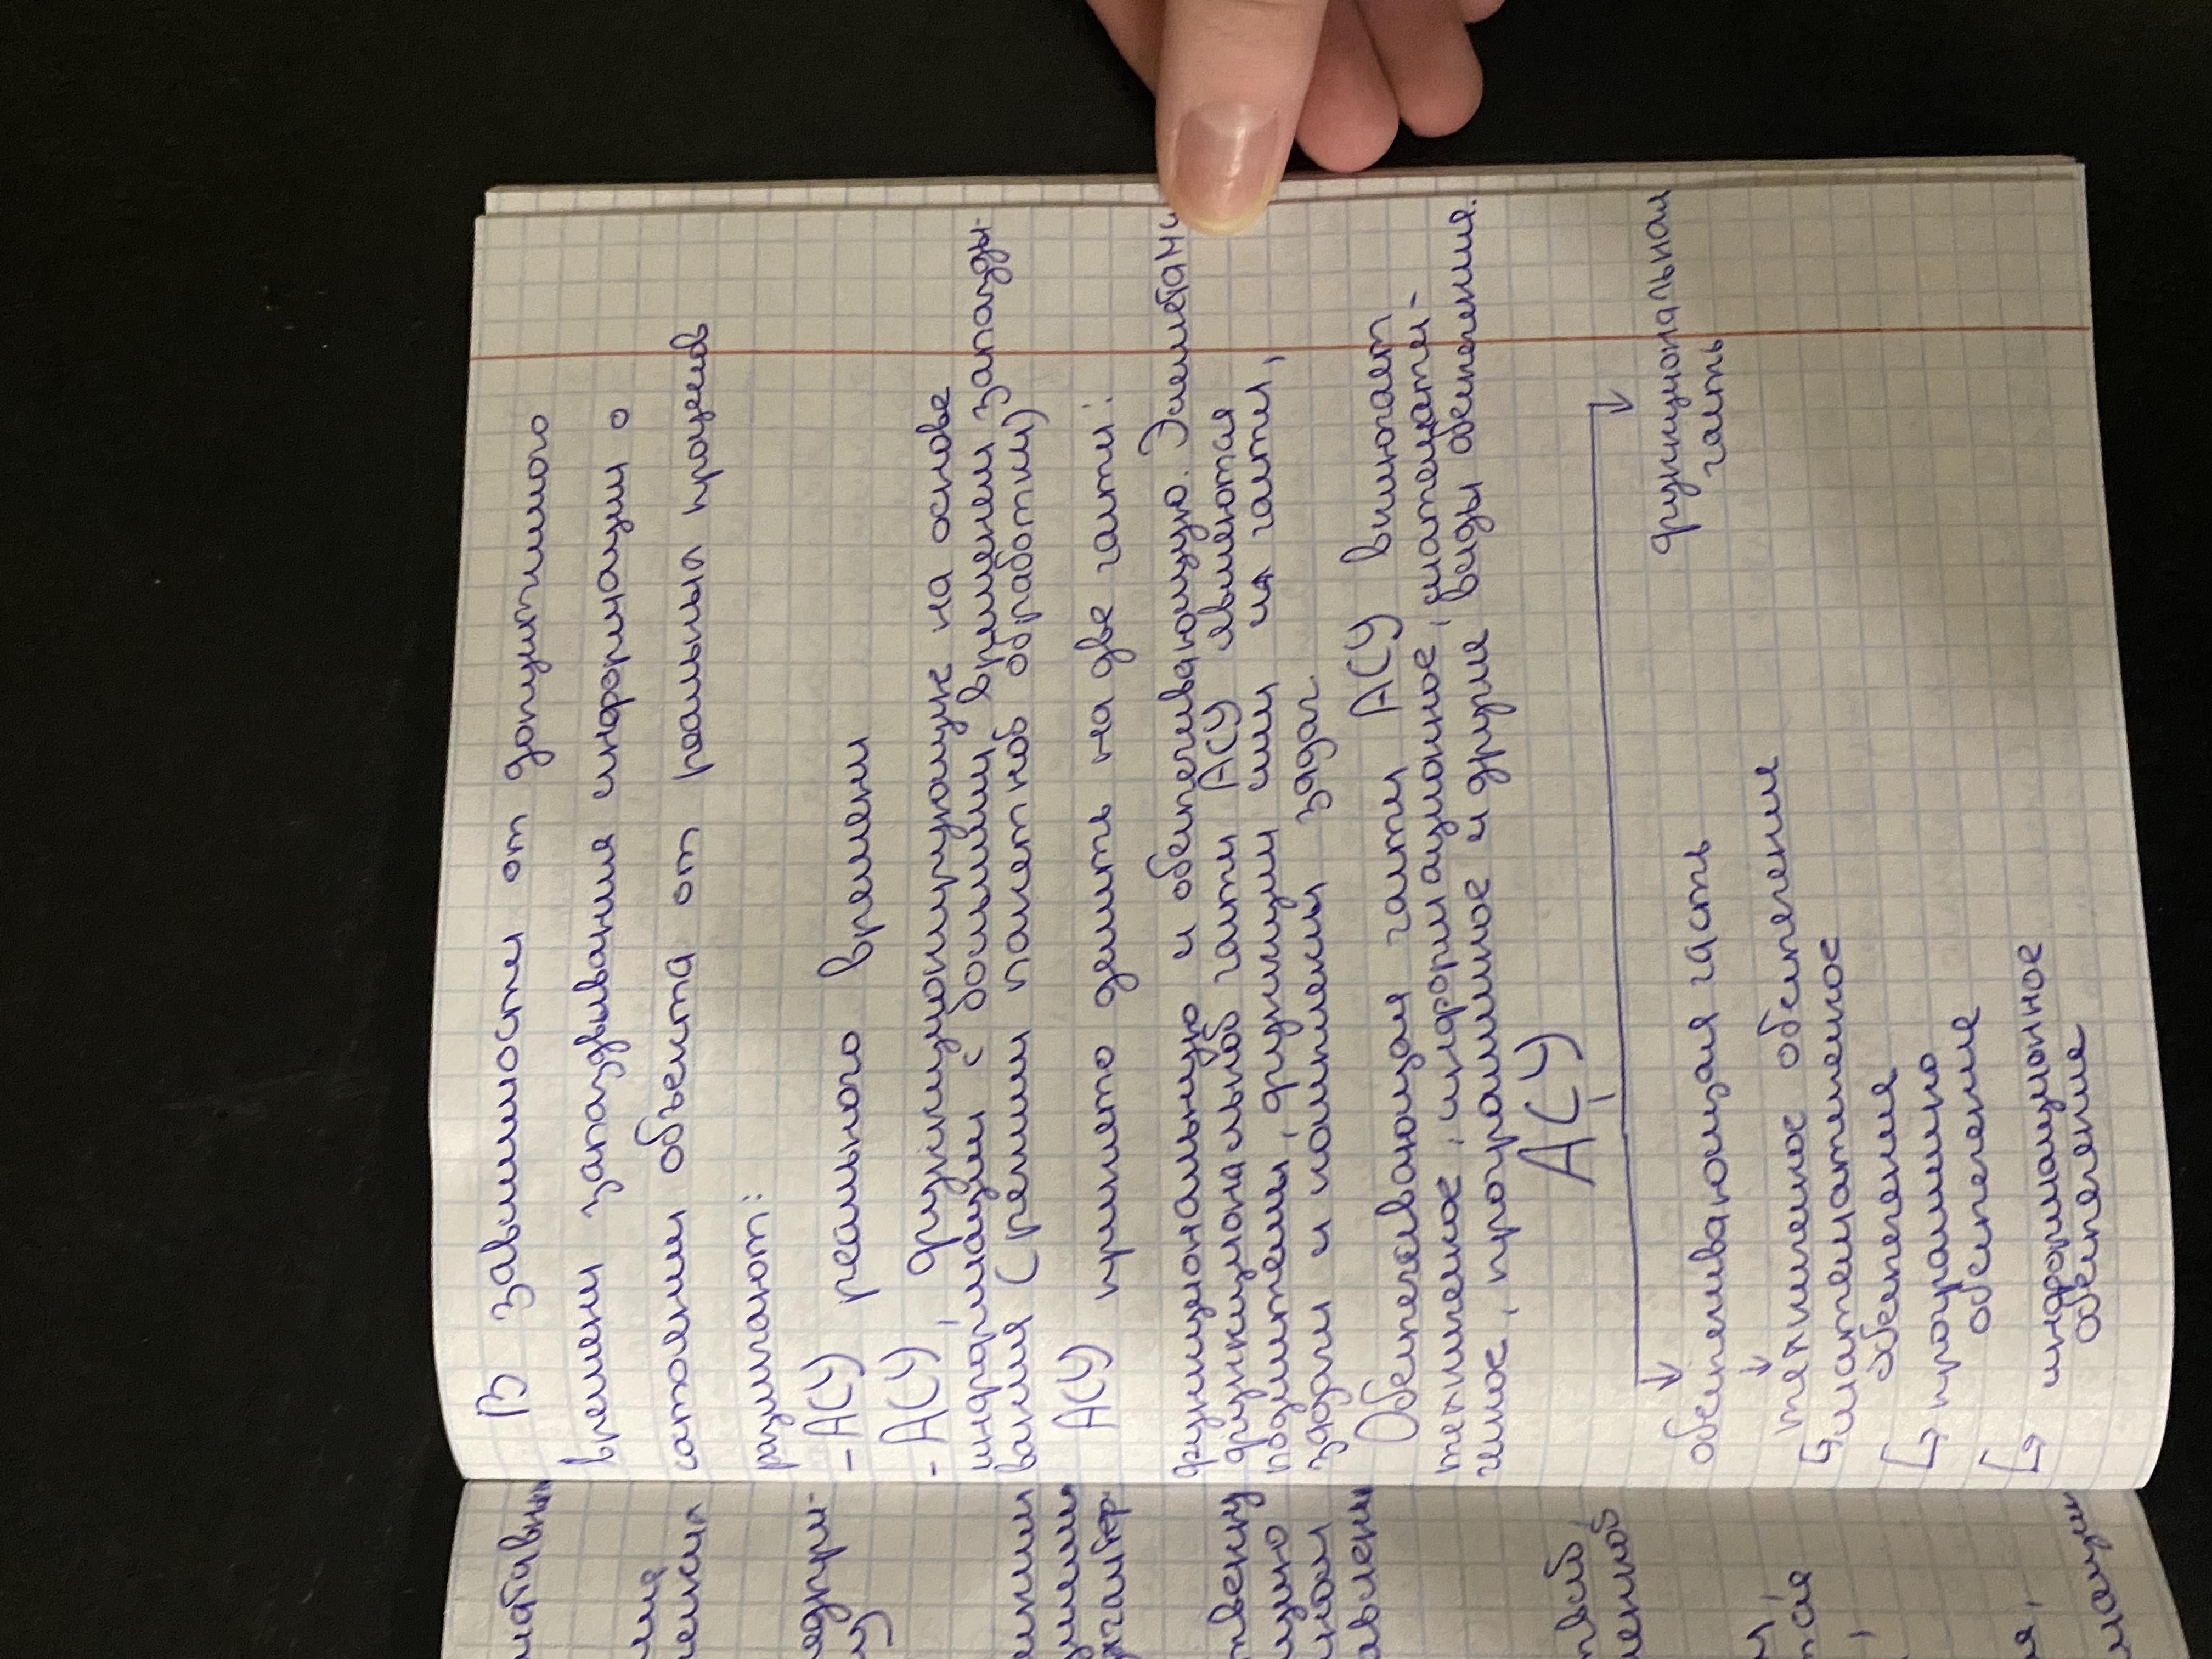 В зависимости от допустимого
времени запаздывания информации о
состоянии объекта от реальных процессов
различают:
- АСУ реального времени
- АСУ, функционирующие на основе
информации с большим временем запазды-
вания (режим пакетной обработки)
АСУ принято делить на две части:
функциональную и обеспечивающую. Элементами
функциональной части АСУ являются
подсистемы, функции или их части,
задачи и комплексы задач.
Обеспечивающая часть АСУ включает
техническое, информационное, математи-
ческое, программное и другие виды обеспечения.
АСУ
обеспечивающая часть
функциональная
часть
техническое обеспечение
математическое
обеспечение
программно
обеспечение
информационное
обеспечение